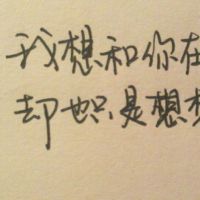 我想和你在
却也只是想想